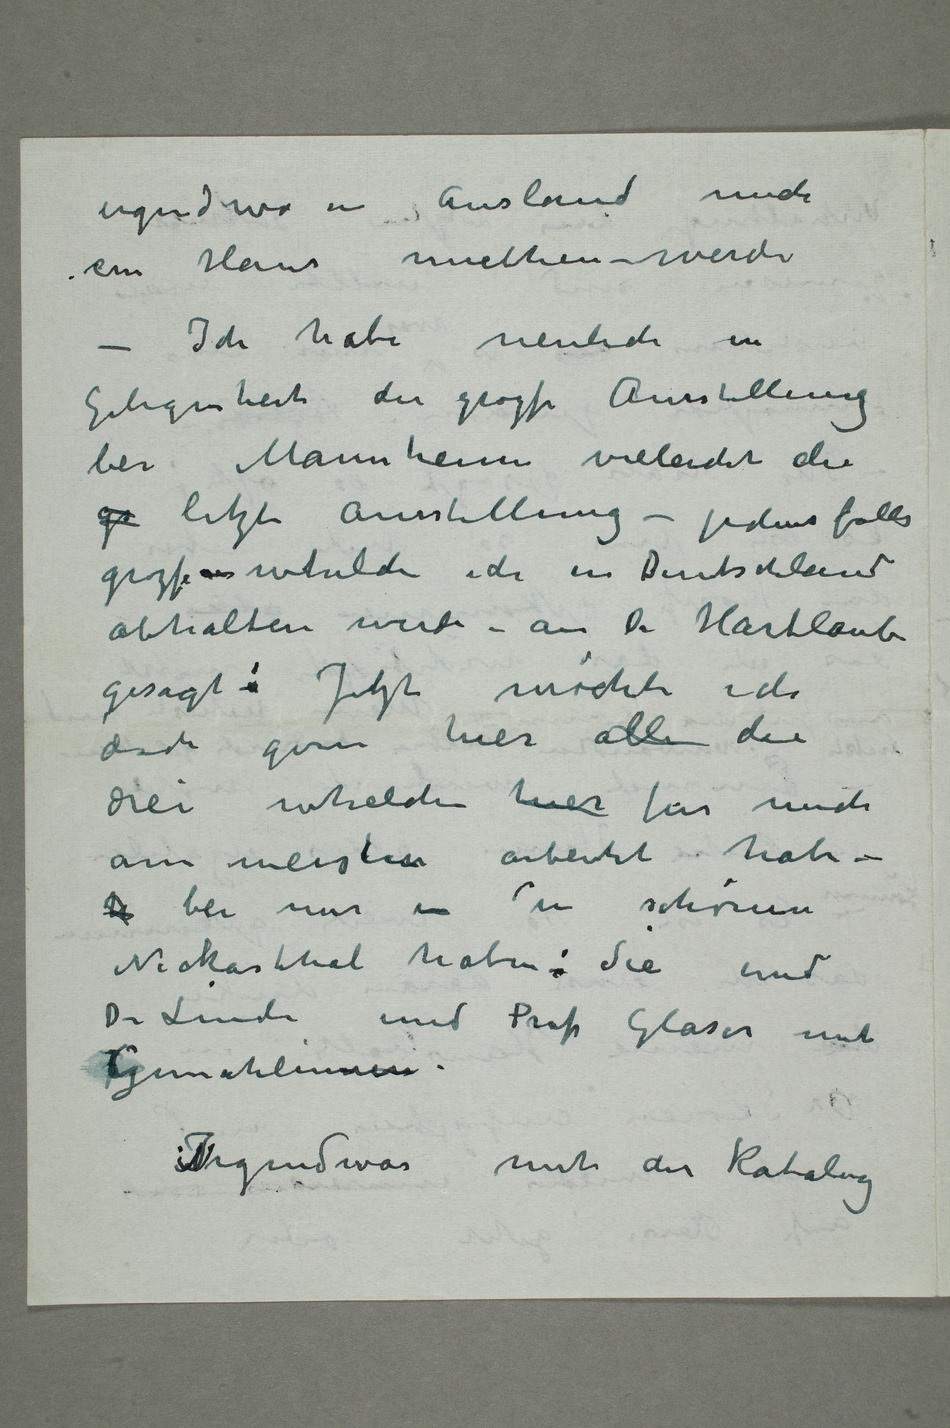 irgendwo in Ausland mich
ein Haus miethen – werde
– Ich habe neulich in
Gelegenheit der grozse Ausstellung
bei Mannheim vieleicht die
gr letzte Ausstellung – jedensfalls
grozse whelche ich in Deutschland
abhalten werde – an Dr Hartlaub
gesagt: Jetzt möchte ich
doch gern hier alle die
drei whelche hier für mich
am meisten arbeitet habe –
bei mir in 'm schönen
Nekarthal haben: Sie und
Dr Linde und Prof Glaser mit
Gemahlinnen.
Irgendwas mit der Katalog